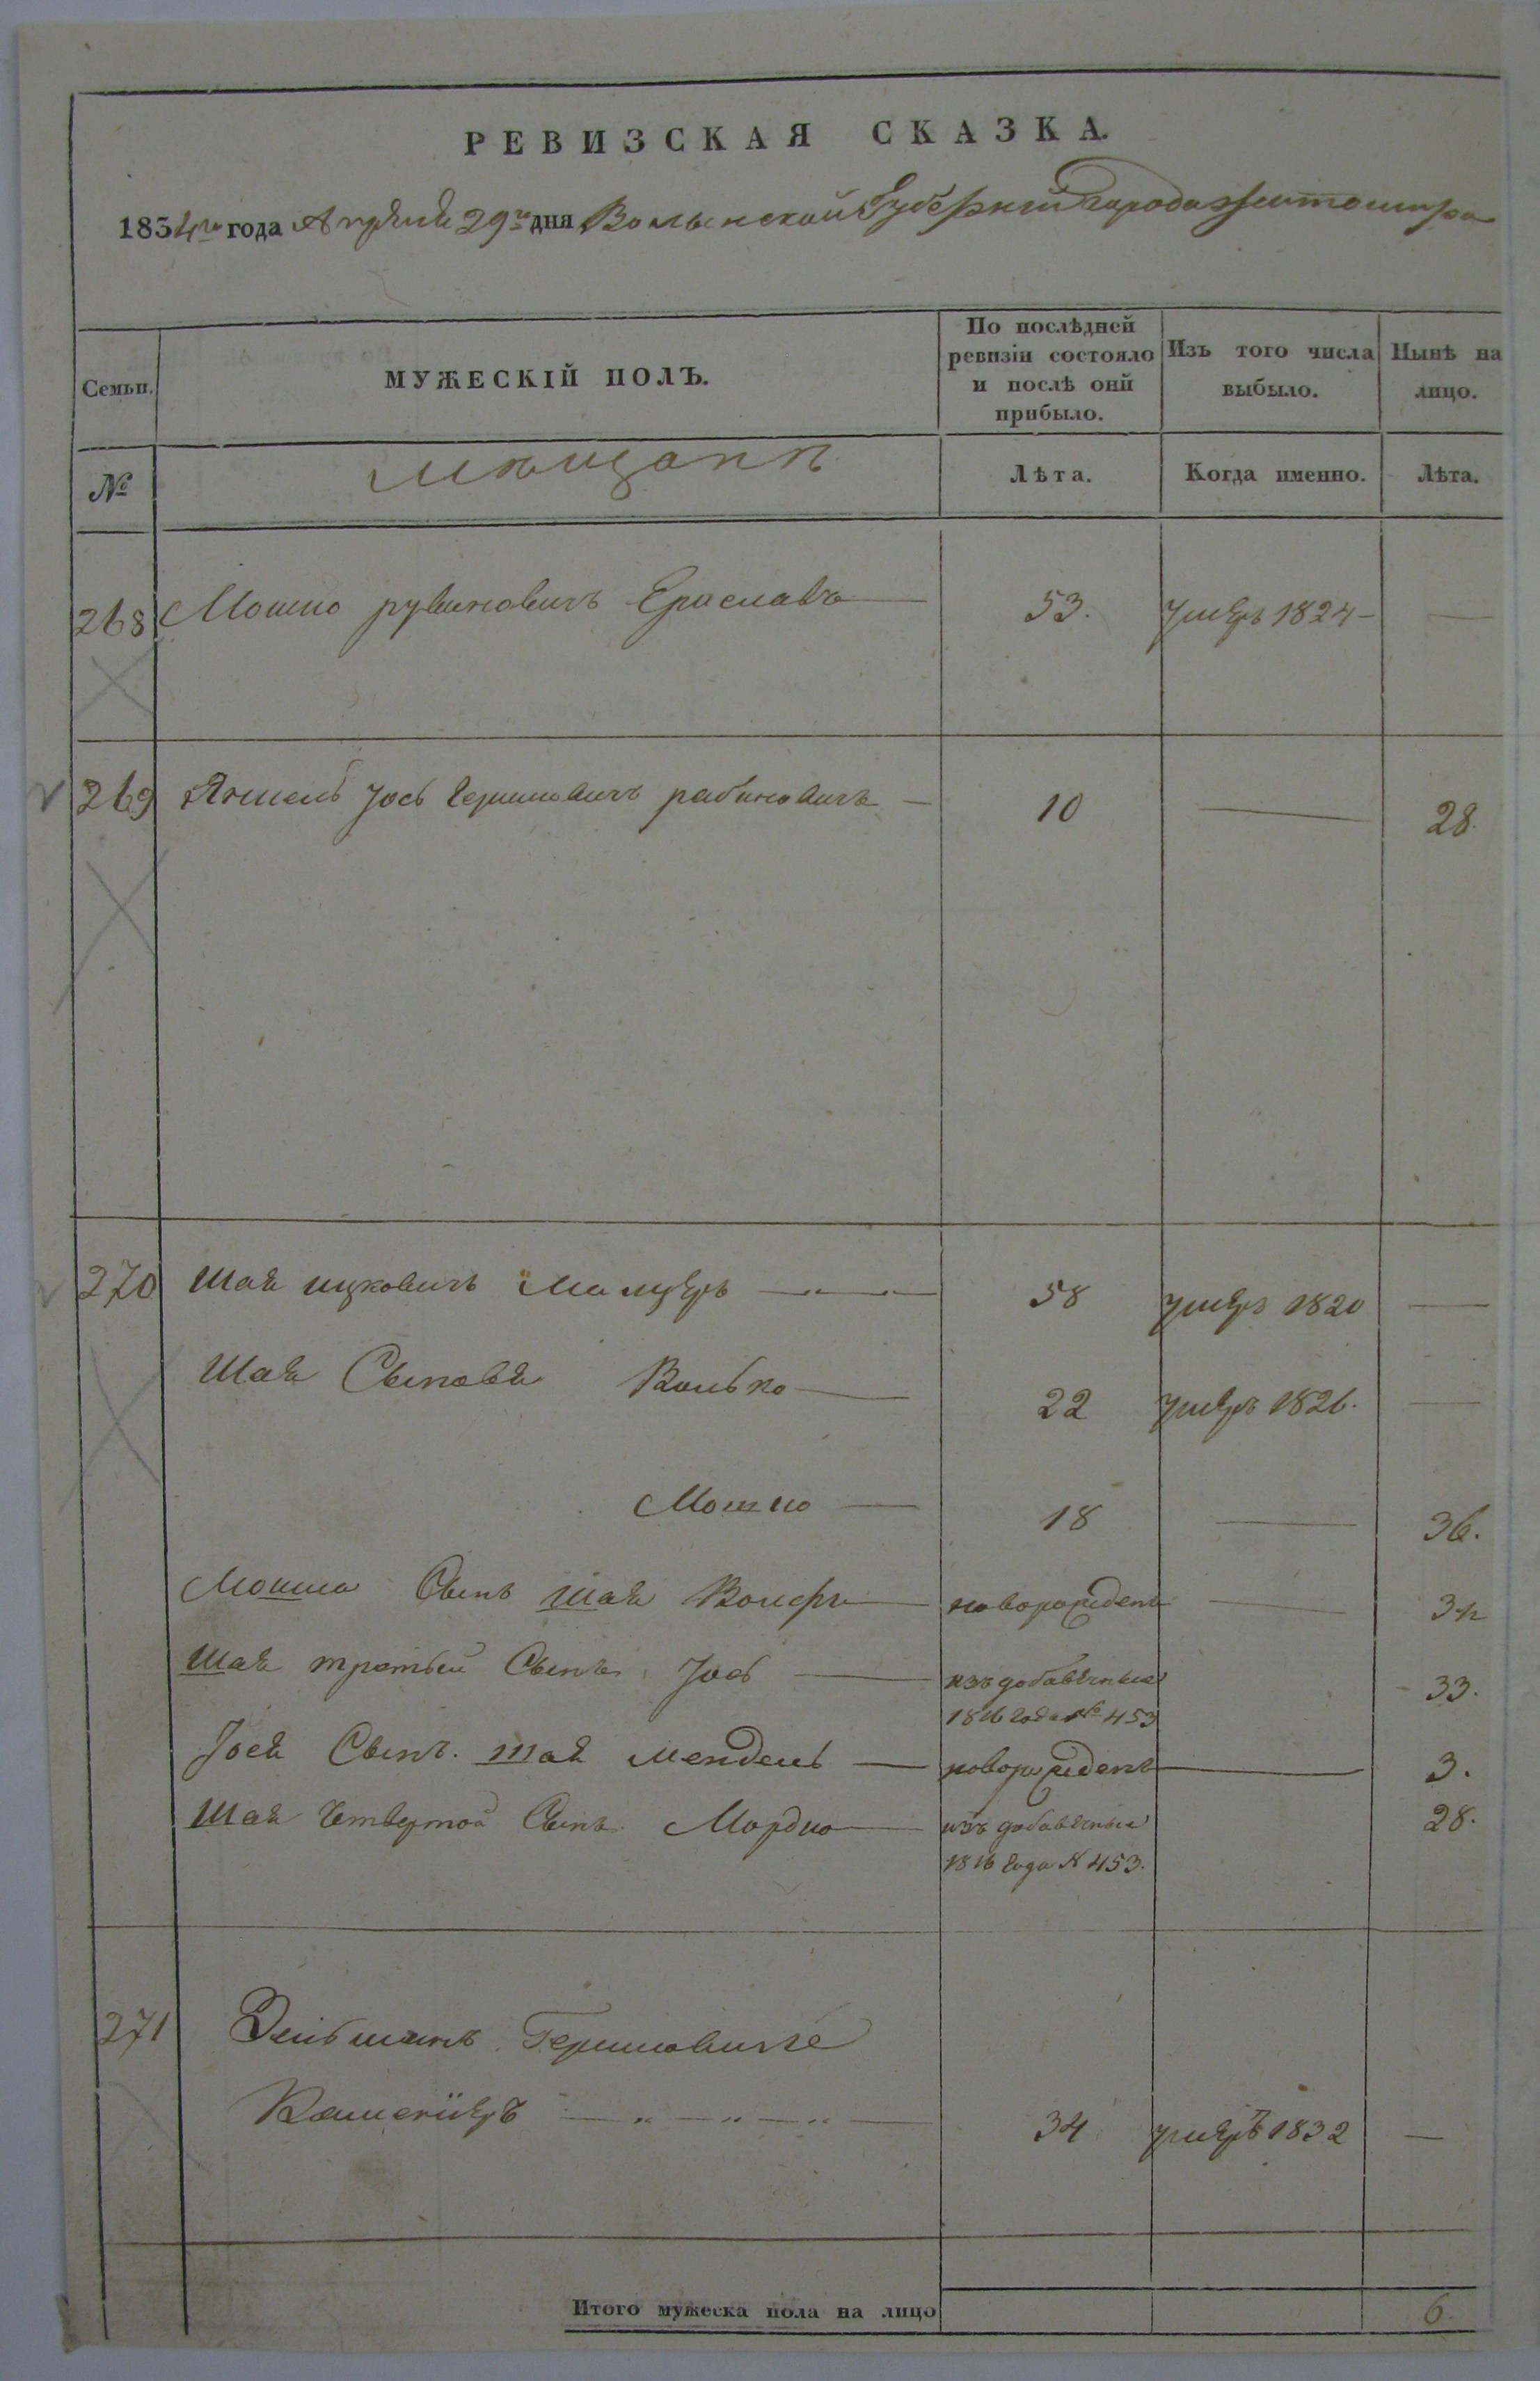 РЕВИЗСКАЯ СКАЗКА.
1834го года Апреля 29го дня Волынской Губерніи города Житомира
Семьи. МУЖЕСКІЙ ПОЛЪ. По послѣдней ревизіи состояло и послѣ оній прибыло. Изъ того числа выбыло. Нынѣ на лицо.
№ мѣщанѣ Лѣта. Когда именно. Лѣта.
268 Мошко рувиновичъ 53. умеръ 1824 —
269 Янкель Іось Гершковичъ рабиновичъ — 10 — 28.
270 Шая ицковичъ 58 умеръ 1820 —
Шая Сыновя Волько — 22 умеръ 1826. —
Мошко — 18 — 36.
Мошка Сынъ Шая Вольфъ — новорожденъ — 3
Шая третьей Сынъ Іось — изъ добавочныхъ 33.
1816 года № 453
Іося Сынъ. Шая мендель — новорожденъ — 3.
Шая Четвертой Сынъ Мордко — изъ добавочныхъ 28.
1816 года № 453.
271 Зельманъ Гершковичъ
34 умеръ 1832 —
Итого мужеска пола на лицо 6.